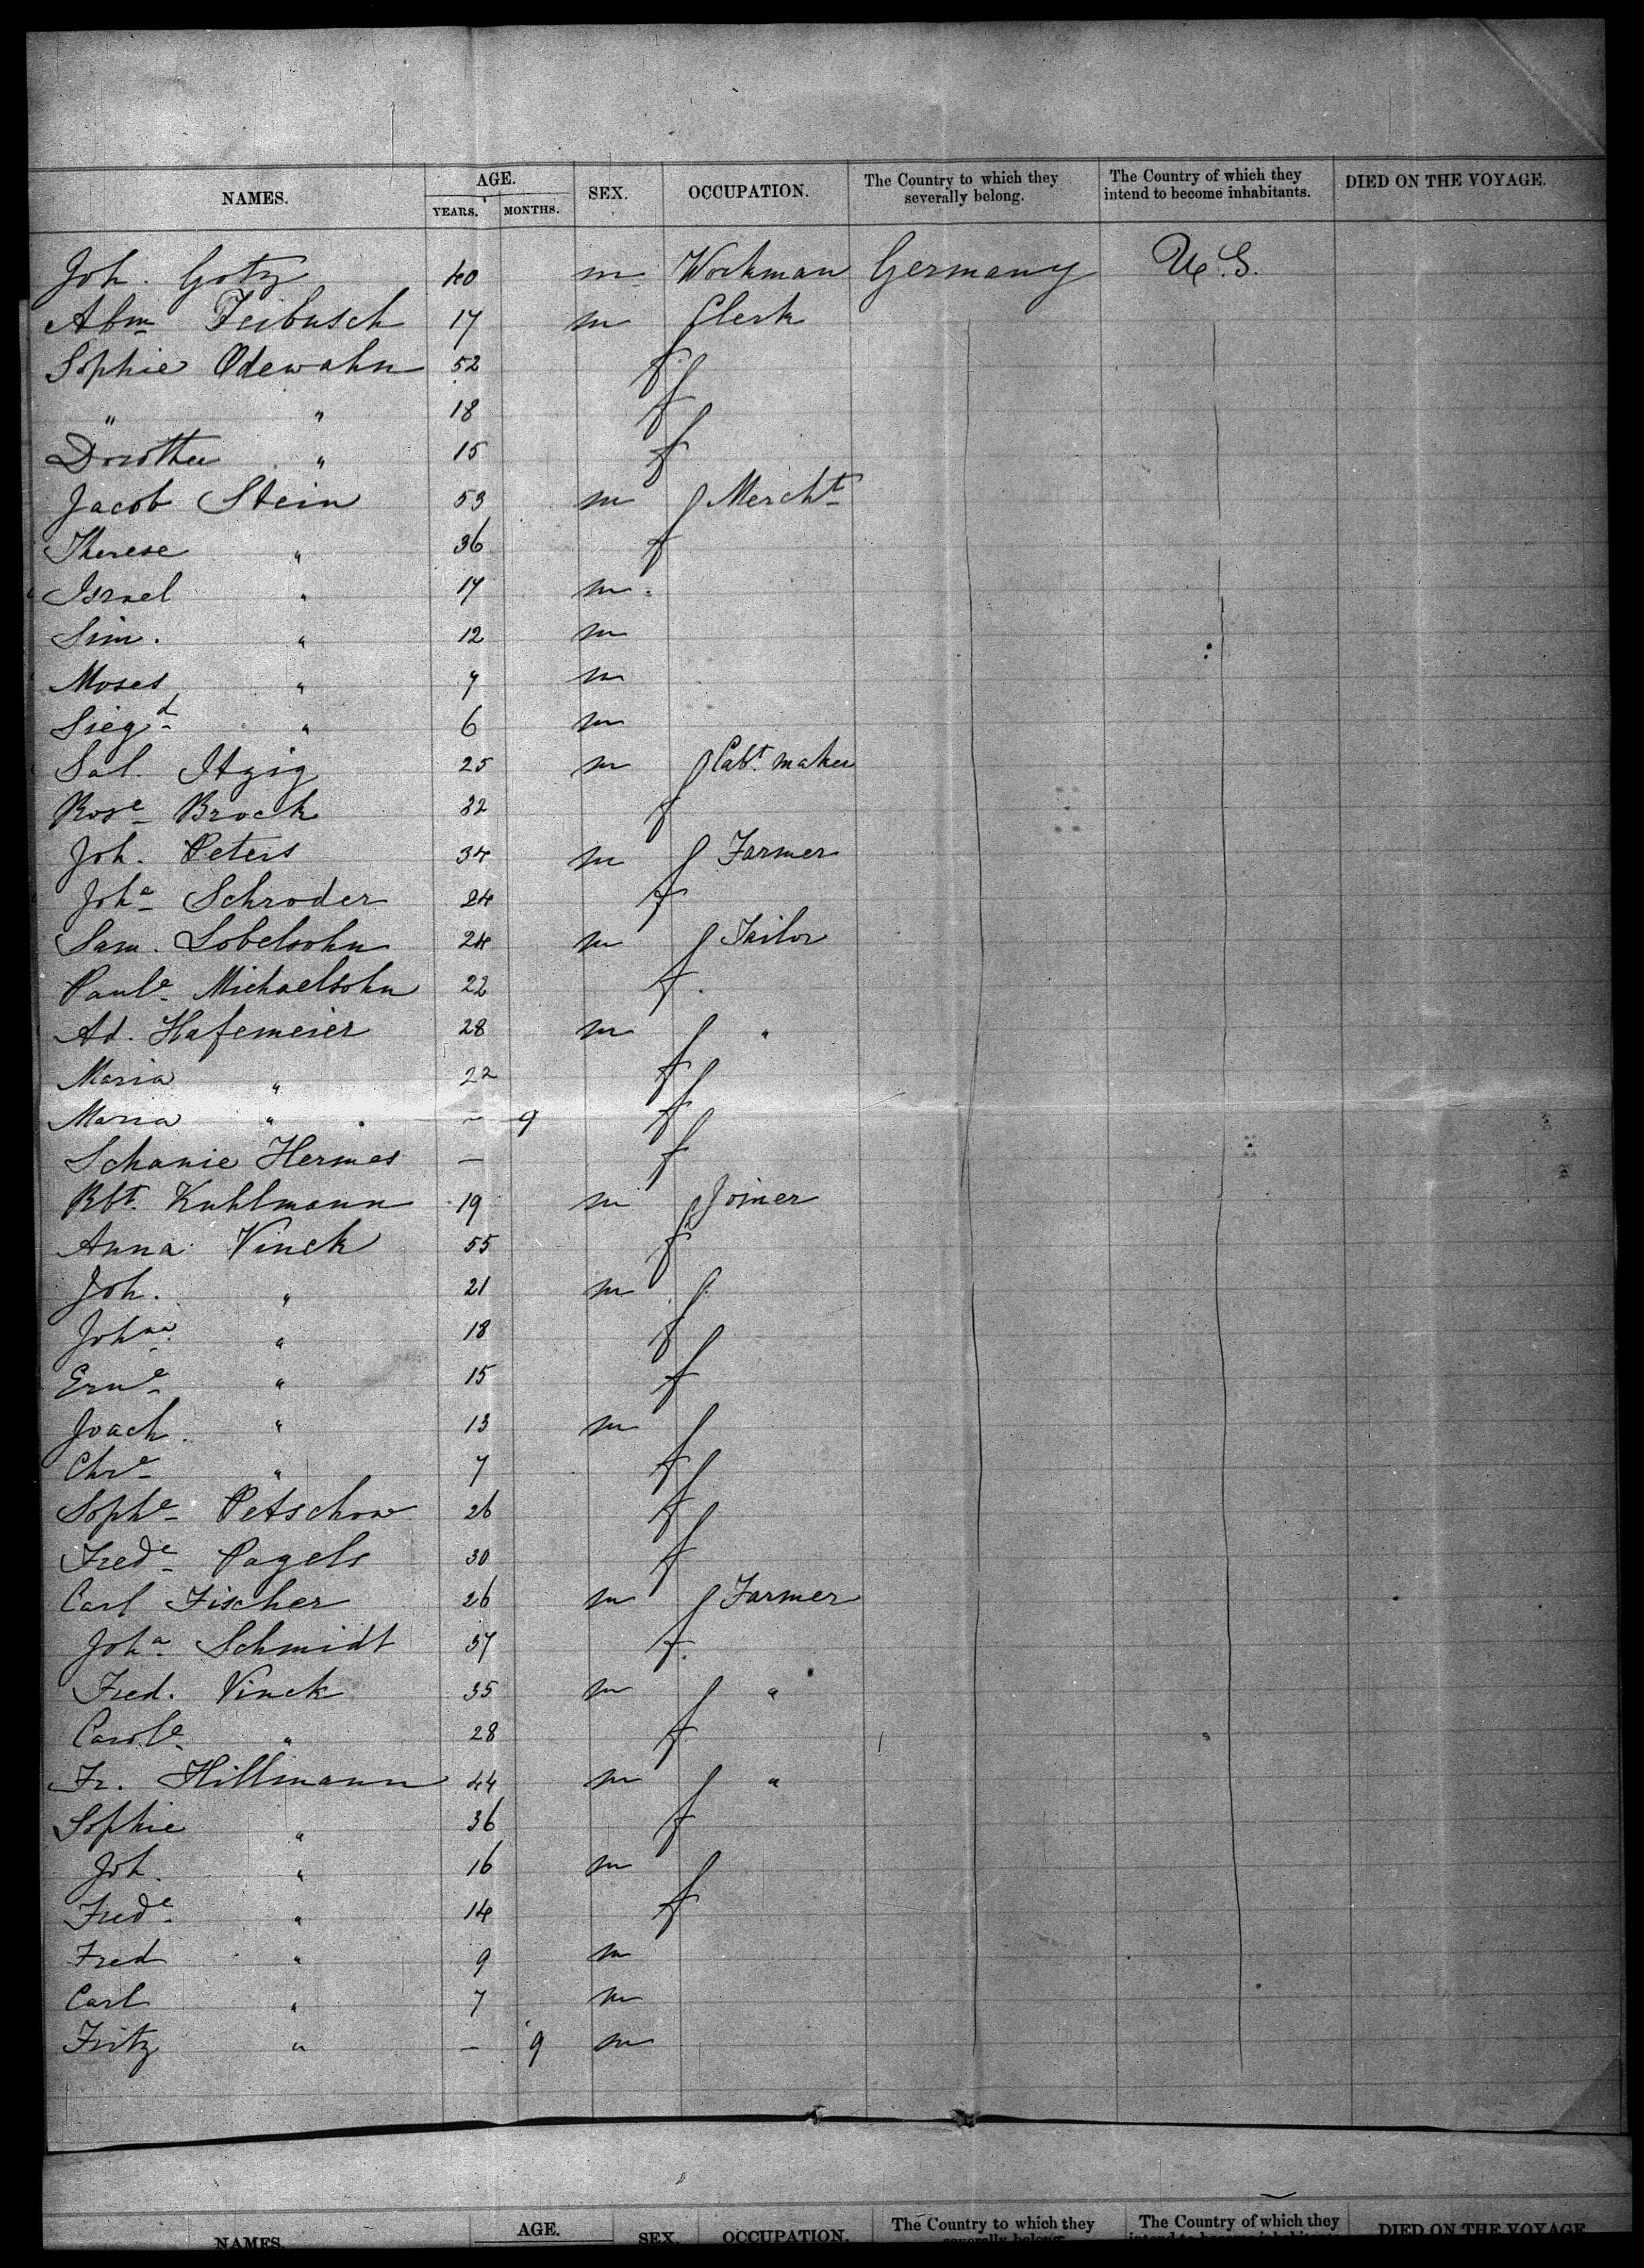 NAMES. AGE. YEARS. MONTHS. SEX. OCCUPATION. The Country to which they severally belong. The Country of which they intend to become inhabitants. DIED ON THE VOYAGE.
Joh. Gotz 40 m Workman Germany U.S.
Abm Feibusch 17 m Clerk
Sophie Odewahn 52 f
" " 18 f
Dorothee " 15 f
Jacob Stein 53 m Mercht
Therese " 36 f
Israel " 17 m
Sim. " 12 m
Moses " 7 m
Siegd " 6 m
Sal. Itzig 25 m Cabt. maker
Rose Brock 32 f
Joh. Peters 34 m Farmer
Joha Schroder 24 f
Sam. Lobelsohn 24 m Tailor
Paule Michaelsohn 22 f
Ad. Hafemeier 28 m "
Maria " 22 f
Maria " – 9 f
Schanie Hermes — f
Rbt. Kuhlmann 19 m Joiner
Anna Vinck 55 f
Joh. " 21 m
Johna " 18 f
Erne " 15 f
Joach. " 13 m
Chre " 7 f
Sophe Petschow 26 f
Frede Pagels 30 f
Carl Fischer 26 m Farmer
Joha Schmidt 37 f
Fred. Vinck 35 m "
Carole " 28 f
Fr. Hillmann 44 m "
Sophie " 36 f
Joh. " 16 m
Frede " 14 f
Fred " 9 m
Carl " 7 m
Fritz " – 9 m
NAMES. AGE. SEX. OCCUPATION. The Country to which they severally belong. The Country of which they intend to become inhabitants. DIED ON THE VOYAGE